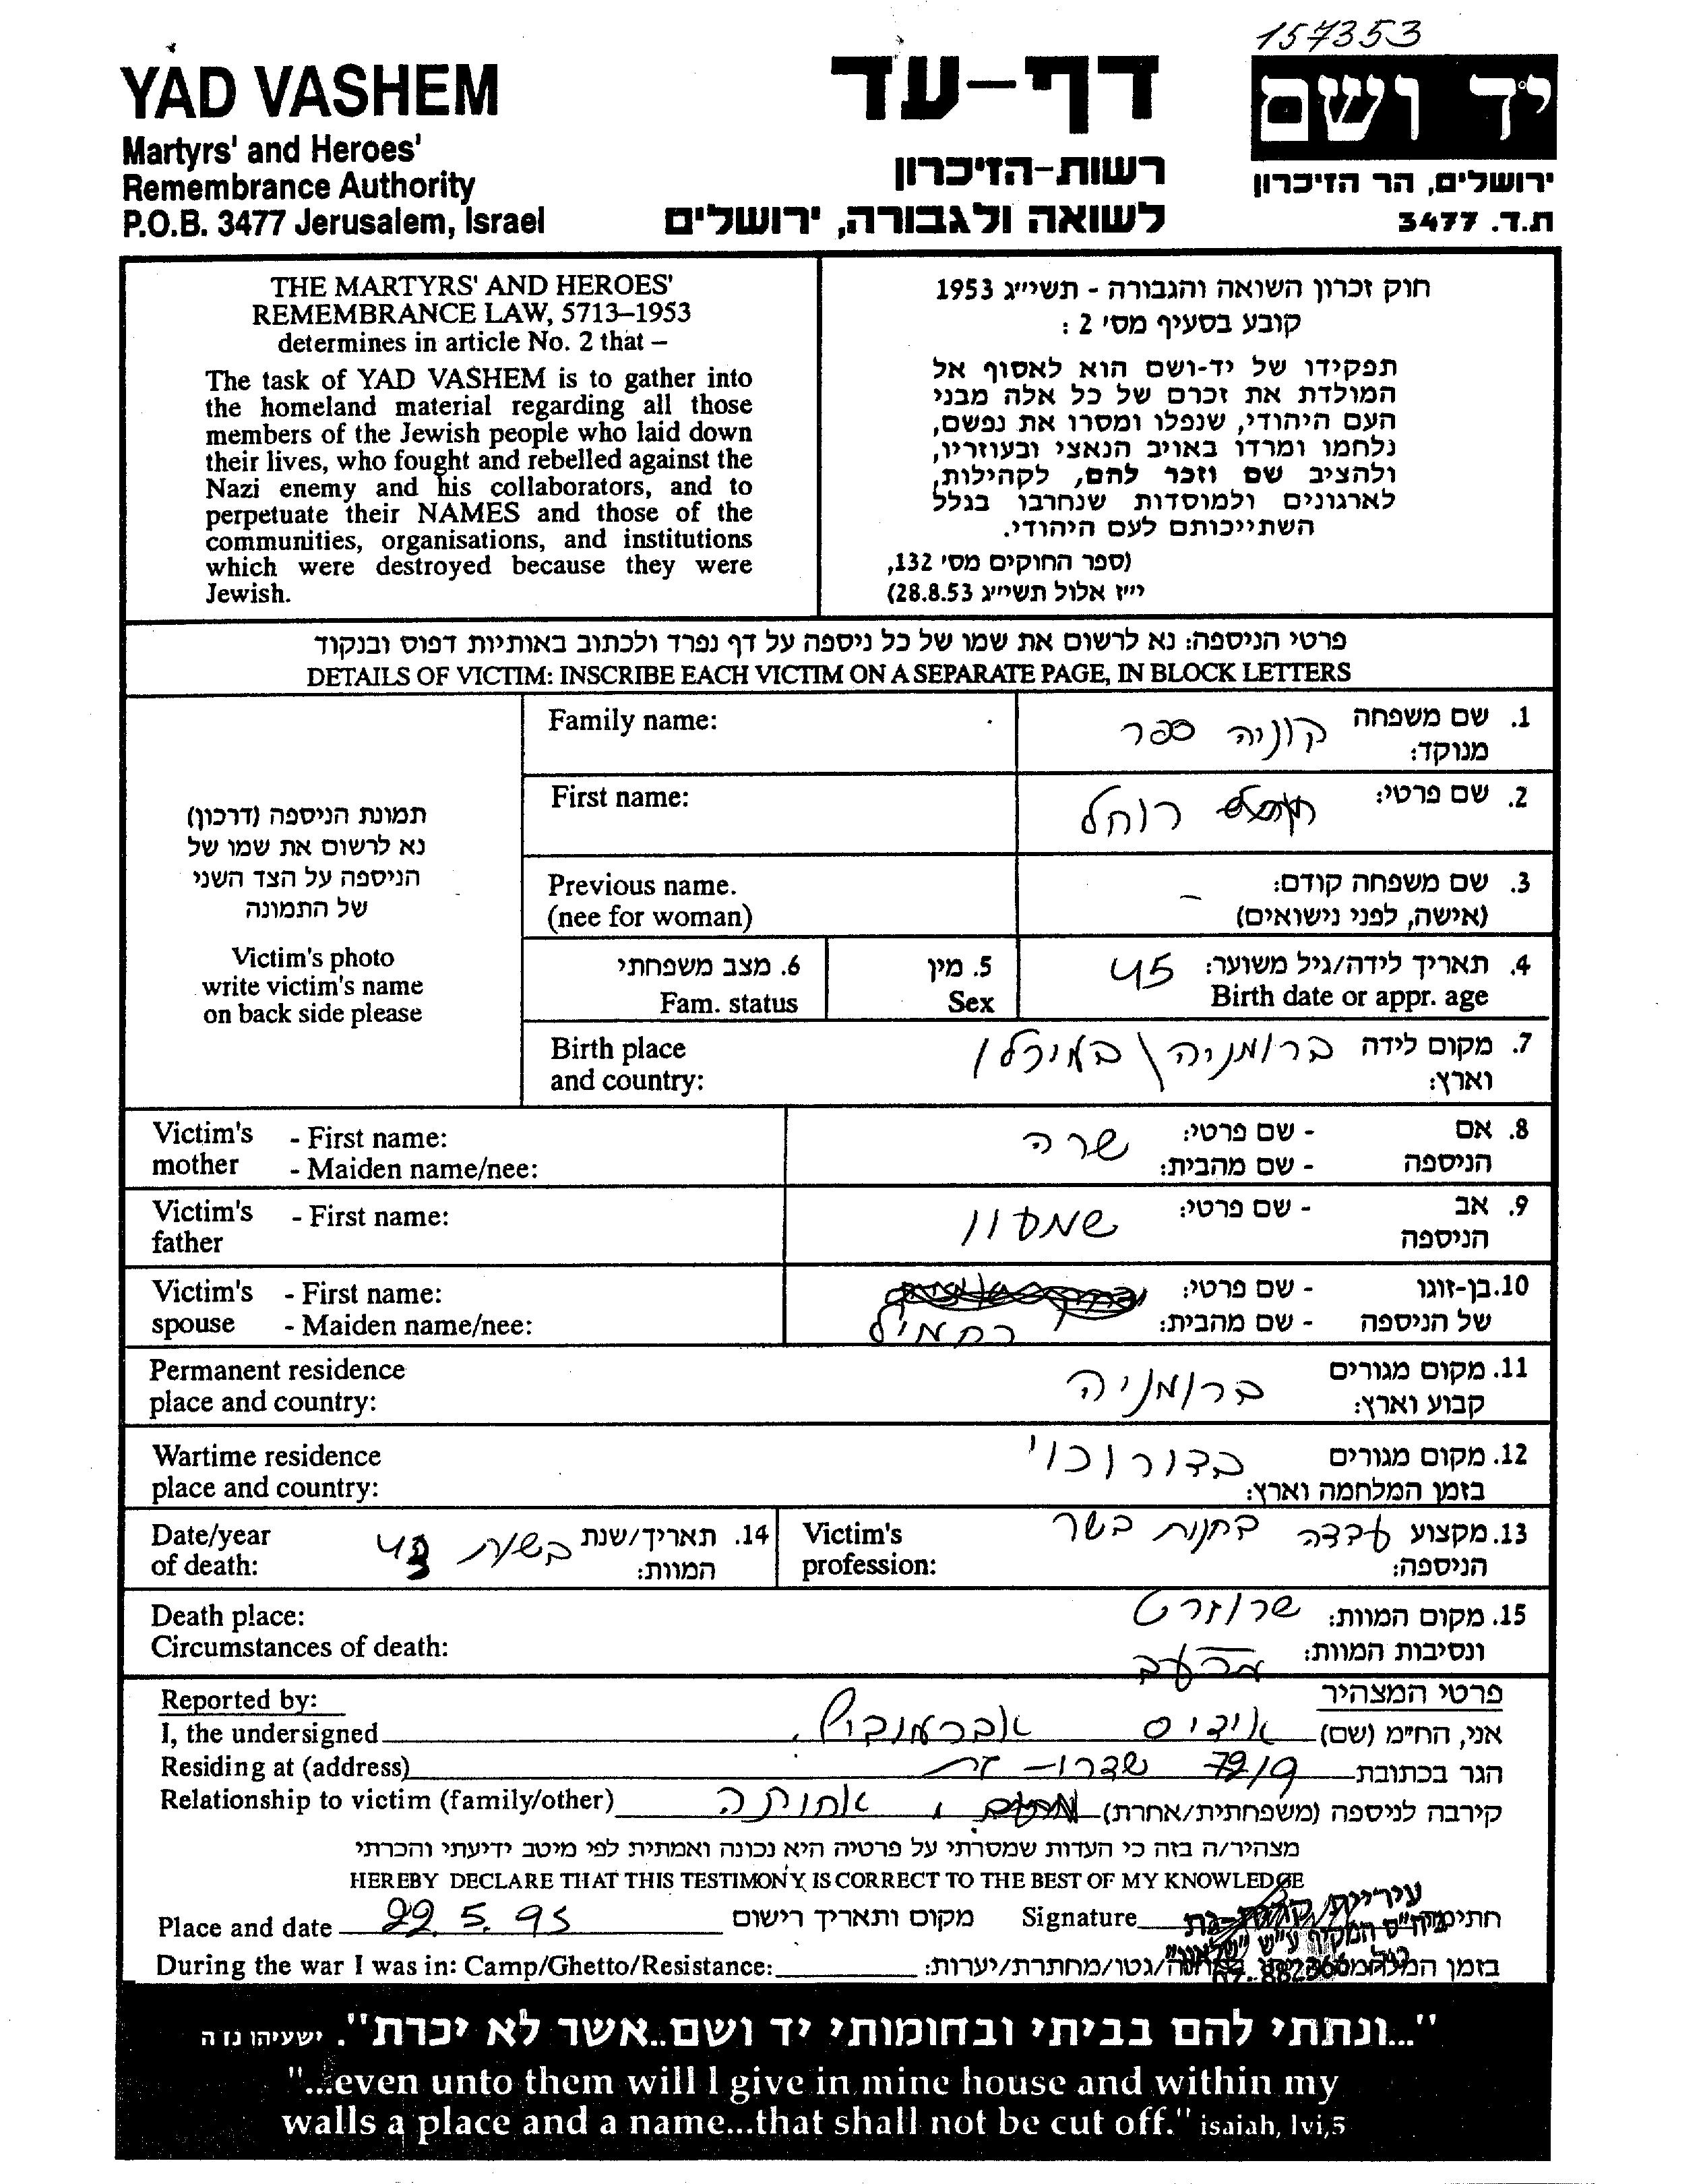 157353
YAD VASHEM
Martyrs' and Heroes'
Remembrance Authority
P.O.B. 3477 Jerusalem, Israel
דף-עד
רשות-הזיכרון
לשואה ולגבורה, ירושלים
יד ושם
ירושלים, הר הזיכרון
ת.ד. 3477
THE MARTYRS' AND HEROES'
REMEMBRANCE LAW, 5713–1953
determines in article No. 2 that –
The task of YAD VASHEM is to gather into
the homeland material regarding all those
members of the Jewish people who laid down
their lives, who fought and rebelled against the
Nazi enemy and his collaborators, and to
perpetuate their NAMES and those of the
communities, organisations, and institutions
which were destroyed because they were
Jewish.
חוק זכרון השואה והגבורה - תשי״ג 1953
קובע בסעיף מס' 2 :
תפקידו של יד-ושם הוא לאסוף אל
המולדת את זכרם של כל אלה מבני
העם היהודי, שנפלו ומסרו את נפשם,
נלחמו ומרדו באויב הנאצי ובעוזריו,
ולהציב שם וזכר להם, לקהילות,
לארגונים ולמוסדות שנחרבו בגלל
השתייכותם לעם היהודי.
(ספר החוקים מס' 132,
י״ז אלול תשי״ג 28.8.53)
פרטי הניספה: נא לרשום את שמו של כל ניספה על דף נפרד ולכתוב באותיות דפוס ובנקוד
DETAILS OF VICTIM: INSCRIBE EACH VICTIM ON A SEPARATE PAGE, IN BLOCK LETTERS
תמונת הניספה (דרכון)
נא לרשום את שמו של
הניספה על הצד השני
של התמונה
Victim's photo
write victim's name
on back side please
Family name:
1. שם משפחה קוניה ספר
מנוקד:
First name:
2. שם פרטי: רוחל
Previous name.
(nee for woman)
3. שם משפחה קודם: –
(אישה, לפני נישואים)
4. תאריך לידה/גיל משוער: 45
Birth date or appr. age
5. מין
Sex
6. מצב משפחתי
Fam. status
Birth place
and country:
7. מקום לידה ברומניה \
וארץ:
Victim's mother
- First name:
- Maiden name/nee:
8. אם הניספה
- שם פרטי: שרה
- שם מהבית:
Victim's father
- First name:
9. אב הניספה
- שם פרטי: שמעון
Victim's spouse
- First name:
- Maiden name/nee:
10. בן-זוגו של הניספה
- שם פרטי:
- שם מהבית: רחמיל
Permanent residence
place and country:
11. מקום מגורים ברומניה
קבוע וארץ:
Wartime residence
place and country:
12. מקום מגורים בדורוכוי
בזמן המלחמה וארץ:
Victim's profession:
13. מקצוע עבדה בחנות בשר
הניספה:
Date/year of death:
14. תאריך/שנת בשנת 43
המוות:
Death place:
Circumstances of death:
15. מקום המוות: שרוזרט
ונסיבות המוות: מרעב
Reported by:
פרטי המצהיר
I, the undersigned
אני, הח״מ (שם) אידיס אברמוביץ
Residing at (address)
הגר בכתובת 72/9 שדרו-
Relationship to victim (family/other)
קירבה לניספה (משפחתית/אחרת) אחותה
מצהיר/ה בזה כי העדות שמסרתי על פרטיה היא נכונה ואמתית לפי מיטב ידיעתי והכרתי
HEREBY DECLARE THAT THIS TESTIMONY IS CORRECT TO THE BEST OF MY KNOWLEDGE
Place and date 22. 5. 95 מקום ותאריך רישום
Signature חתימה
עיריית קרית-גת
During the war I was in: Camp/Ghetto/Resistance:
בזמן המלחמה /גטו/מחתרת/יערות:
"...ונתתי להם בביתי ובחומותי יד ושם..אשר לא יכרת". ישעיהו נו ה
"...even unto them will I give in mine house and within my
walls a place and a name...that shall not be cut off." isaiah, lvi,5